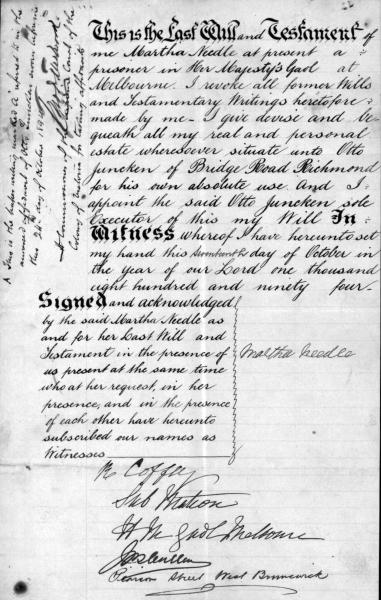 This is the Last Will and Testament of
me Martha Needle at present a
prisoner in Her Majesty's Gaol at
Melbourne. I revoke all former Wills
and Testamentary Writings heretofore
made by me – I give devise and be
queath all my real and personal
estate wheresoever situate unto Otto
Juncken of Bridge Road Richmond
for his own absolute use. And I
appoint the said Otto Juncken sole
Executor of this my Will In
Witness whereof I have hereunto set
my hand this day of October in
the year of our Lord one thousand
eight hundred and ninety four.
Signed and acknowledged
by the said Martha Needle as
and for her Last Will and
Testament in the presence of
us present at the same time
who at her request, in her
presence, and in the presence
of each other have hereunto
subscribed our names as
Witnesses
Martha Needle
R Coffey
H M Gaol Melbourne
Pearson Street West Brunswick
A This is the paper writing marked A referred to in the
annexed affidavit of Otto Juncken sworn before me
this 24th day of October 1894
A Commissioner of the Supreme Court of the
Colony of Victoria for taking affidavits